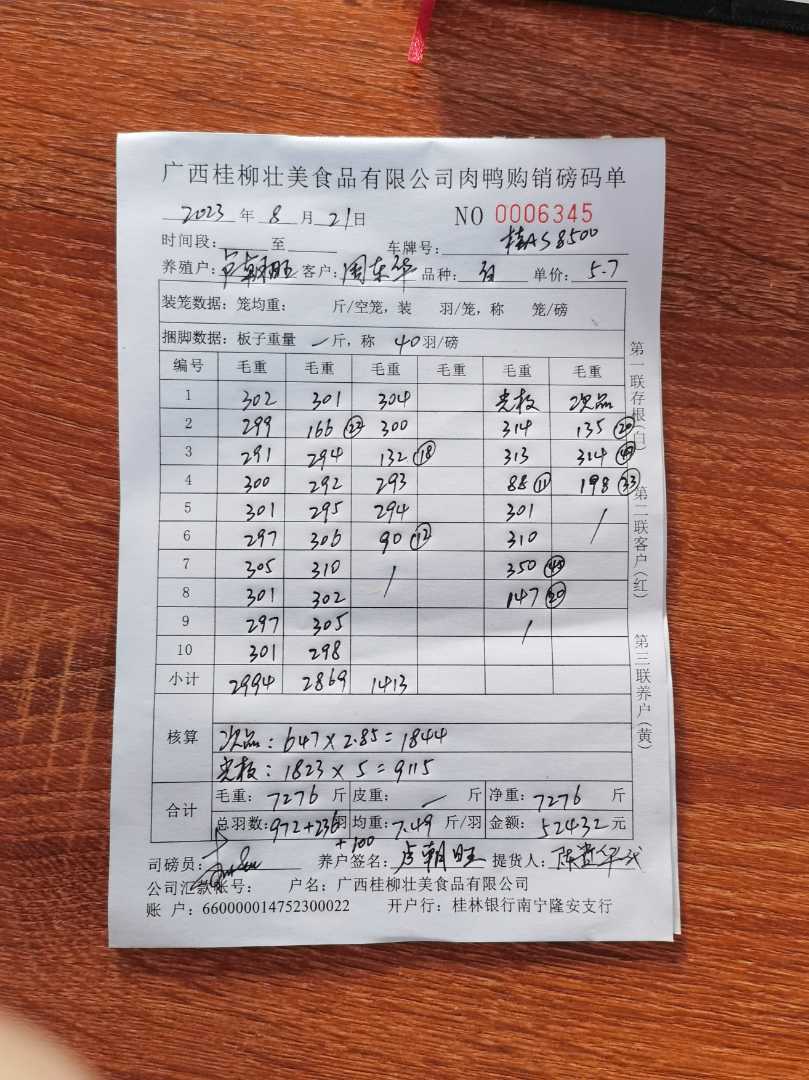 广西桂柳壮美食品有限公司肉鸭购销磅码单
2023 年 8 月 21 日 NO 0006345
时间段: 至 车牌号: 桂AS8500
养殖户: 卢朝旺 客户: 周东华 品种: 白 单价: 5.7
装笼数据: 笼均重: 斤/空笼,装 羽/笼,称 笼/磅
捆脚数据: 板子重量 / 斤,称 40 羽/磅
编号 毛重 毛重 毛重 毛重 毛重 毛重
1 302 301 304 光板 次品
2 299 166 22 300 314 135 20
3 291 294 132 18 313 314 47
4 300 292 293 88 11 198 33
5 301 295 294 301 /
6 297 306 90 12 310
7 305 310 / 350 45
8 301 302 147 20
9 297 305 /
10 301 298
小计 2994 2869 1413
核算 次品: 647×2.85=1844
光板: 1823×5=9115
合计 毛重: 7276 斤 皮重: / 斤 净重: 7276 斤
总羽数: 972+236 羽 均重: 7.49 斤/羽 金额: 52432 元
+100
司磅员: 养户签名: 卢朝旺 提货人:
公司汇款帐号: 户名: 广西桂柳壮美食品有限公司
账 户: 660000014752300022 开户行: 桂林银行南宁隆安支行
第一联存根(白)
第二联客户(红)
第三联养户(黄)